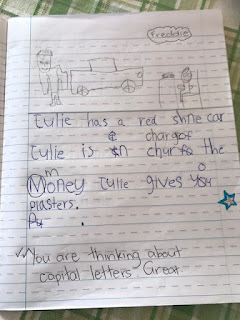 Freddie
Eulie has a red shine car
Eulie is in charge of the
Money Eulie gives you
plasters.
You are thinking about
capital letters. Great.